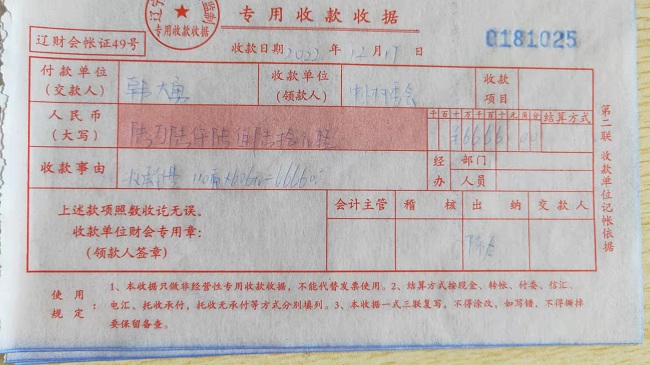 专用收款收据
辽财会帐证49号
专用收款收据
收款日期 2022 年 12 月 17 日
0181025
付款单位
(交款人)
收款单位
(领款人)
收款
项目
人民币
(大写)
千百十万千百十元角分
结算方式
收款事由
经办
部门
人员
上述款项照数收讫无误。
收款单位财会专用章:
(领款人签章)
会计主管
稽核
出纳
交款人
第二联 收款单位记帐依据
使用规定:
1、本收据只做非经营性专用收款收据,不能代替发票使用。2、结算方式按现金、转帐、付委、信汇、
电汇、托收承付,托收无承付等方式分别填列。3、本收据一式三联复写,不得涂改,如写错,不得撕掉
要保留备查。